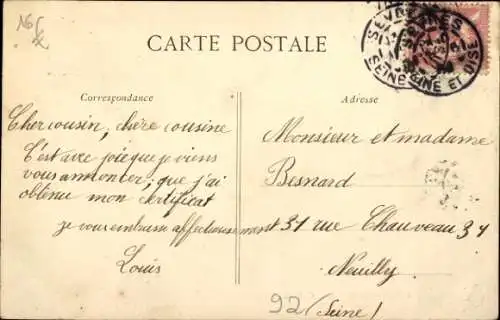 16
CARTE POSTALE
SÈVRES
SEINE ET OISE
Correspondance
Adresse
Cher cousin, chère cousine
C'est avec joie que je viens
vous annoncer, que j'ai
obtenu mon certificat
je vous embrasse affectueusement
Louis
Monsieur et madame
Besnard
31 rue Chauveau 34
Neuilly
92 (Seine)